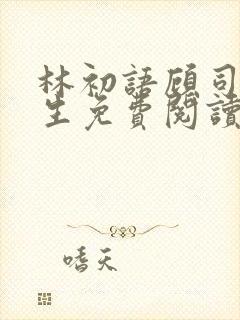 林初語顧司
生免費閱讀
嗜天